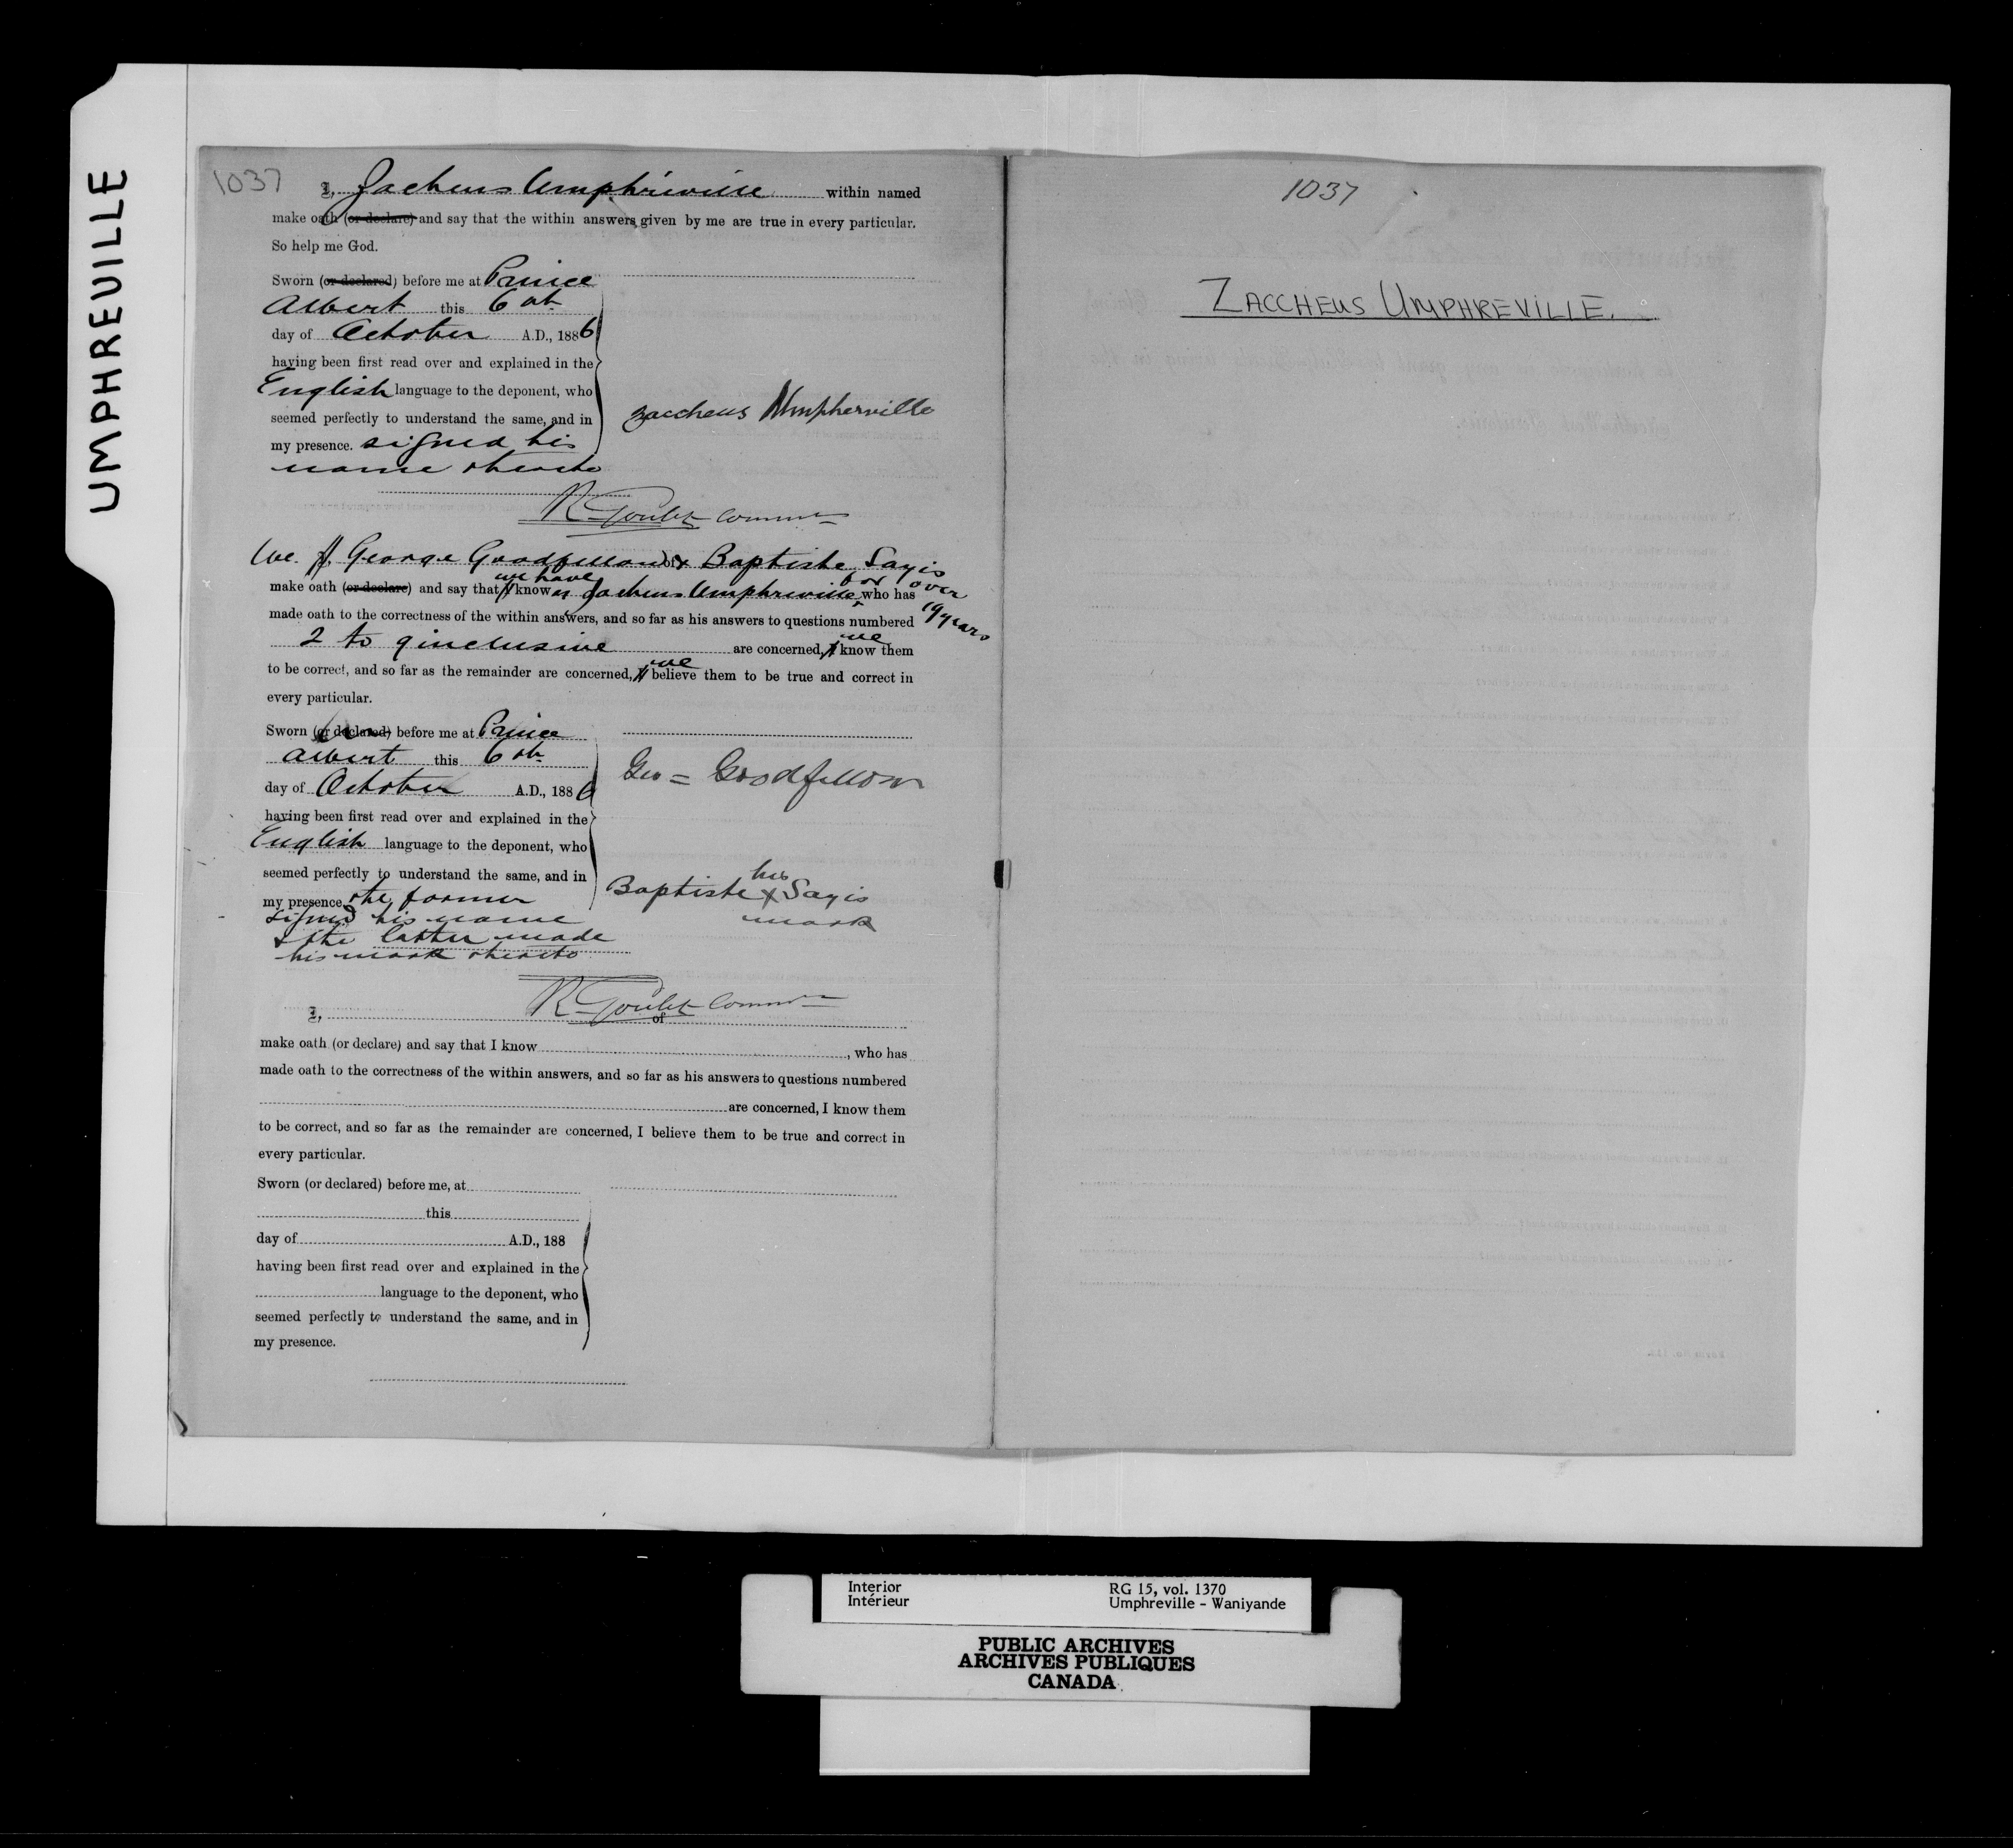 UMPHREVILLE
1037
I, Zacheus Umphreville within named
make oath (or declare) and say that the within answers given by me are true in every particular.
So help me God.
Sworn (or declared) before me at Prince
Albert this 6th
day of October A.D., 1886
having been first read over and explained in the
English language to the deponent, who
seemed perfectly to understand the same, and in
my presence. signed his
name thereto
Zaccheus Umpherville
R Goulet Commr
We I, George Goodfellow of & Baptiste Sayis
make oath (or declare) and say that I we have known Zacheus Umphreville for over 19 years, who has
made oath to the correctness of the within answers, and so far as his answers to questions numbered
2 to 9 inclusive are concerned, I we know them
to be correct, and so far as the remainder are concerned, I we believe them to be true and correct in
every particular.
Sworn (or declared) before me at Prince
Albert this 6th
day of October A.D., 1886
having been first read over and explained in the
English language to the deponent, who
seemed perfectly to understand the same, and in
my presence the former
signed his name
& the latter made
his mark thereto
Geo = Goodfellow
his
Baptiste X Sayis
mark
R Goulet Commr
I, of
make oath (or declare) and say that I know , who has
made oath to the correctness of the within answers, and so far as his answers to questions numbered
are concerned, I know them
to be correct, and so far as the remainder are concerned, I believe them to be true and correct in
every particular.
Sworn (or declared) before me, at
this
day of A.D., 188
having been first read over and explained in the
language to the deponent, who
seemed perfectly to understand the same, and in
my presence.
1037
ZACCHEUS UMPHREVILLE.
Interior
Intérieur
RG 15, vol. 1370
Umphreville - Waniyande
PUBLIC ARCHIVES
ARCHIVES PUBLIQUES
CANADA